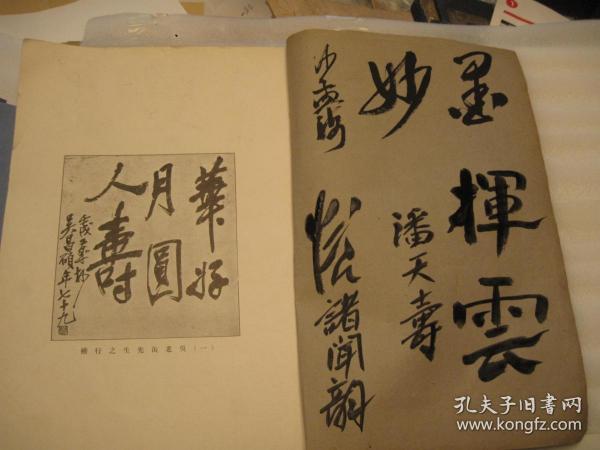 墨揮雲
潘天壽
妙
諸聞韻
華好
月圓
人壽
吳昌碩年七十九
(一)吳老缶先生之行
孔夫子旧书网
www.kongfz.com